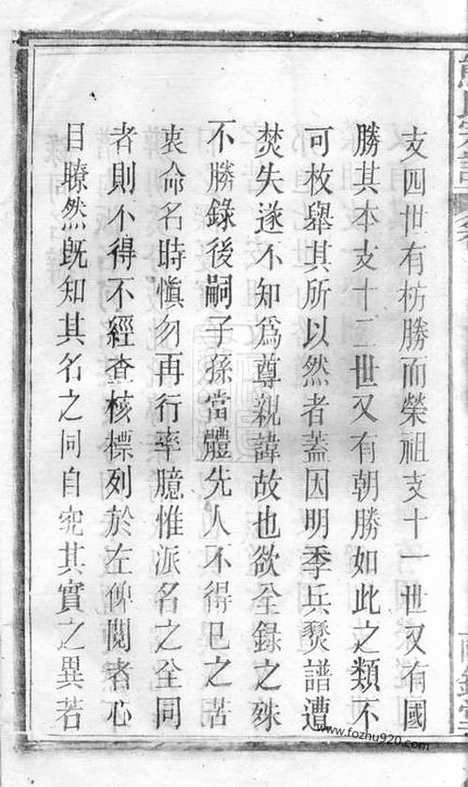 支四世有枋勝而榮祖支十一世又有國
勝其本支十二世又有朝勝如此之類不
可枚舉其所以然者蓋因明季兵燹譜遭
焚失遂不知爲尊親諱故也欲全錄之殊
不勝錄後嗣子孫當體先人不得已之苦
衷命名時愼勿再行率臆惟派名之全同
者則不得不經查核標列於左俾閱者心
目瞭然旣知其名之同自究其實之異若
www.fozhu920.com